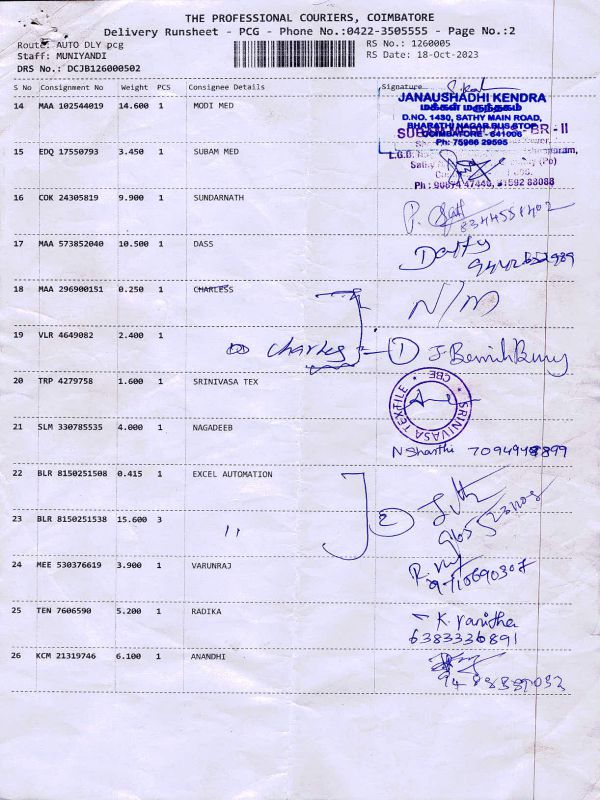 THE PROFESSIONAL COURIERS, COIMBATORE
Delivery Runsheet - PCG - Phone No.:0422-3505555 - Page No.:2
Route: AUTO DLY pcg RS No.: 1260005
Staff: MUNIYANDI RS Date: 18-Oct-2023
DRS No.: DCJB126000502
S No Consignment No Weight PCS Consignee Details Signature
14 MAA 102544019 14.600 1 MODI MED
JANAUSHADHI KENDRA
மக்கள் மருந்தகம்
D.NO. 1430, SATHY MAIN ROAD,
BHARATHI NAGAR BUS STOP
COIMBATORE - 641006
Ph: 75966 29595
15 EDQ 17550793 3.450 1 SUBAM MED
BR - II
Ph : 90874 47440,
16 COK 24305819 9.900 1 SUNDARNATH
8344551402
17 MAA 573852040 10.500 1 DASS
18 MAA 296900151 0.250 1 CHARLESS N/M
19 VLR 4649082 2.400 1 Charles 1
20 TRP 4279758 1.600 1 SRINIVASA TEX
SRINIVASA TEXTILE CBE
21 SLM 330785535 4.000 1 NAGADEEB
N Shanthi 7094948899
22 BLR 8150251508 0.415 1 EXCEL AUTOMATION
23 BLR 8150251538 15.600 3 " 2
24 MEE 530376619 3.900 1 VARUNRAJ
25 TEN 7606590 5.200 1 RADIKA
K. Vanitha
6383336891
26 KCM 21319746 6.100 1 ANANDHI